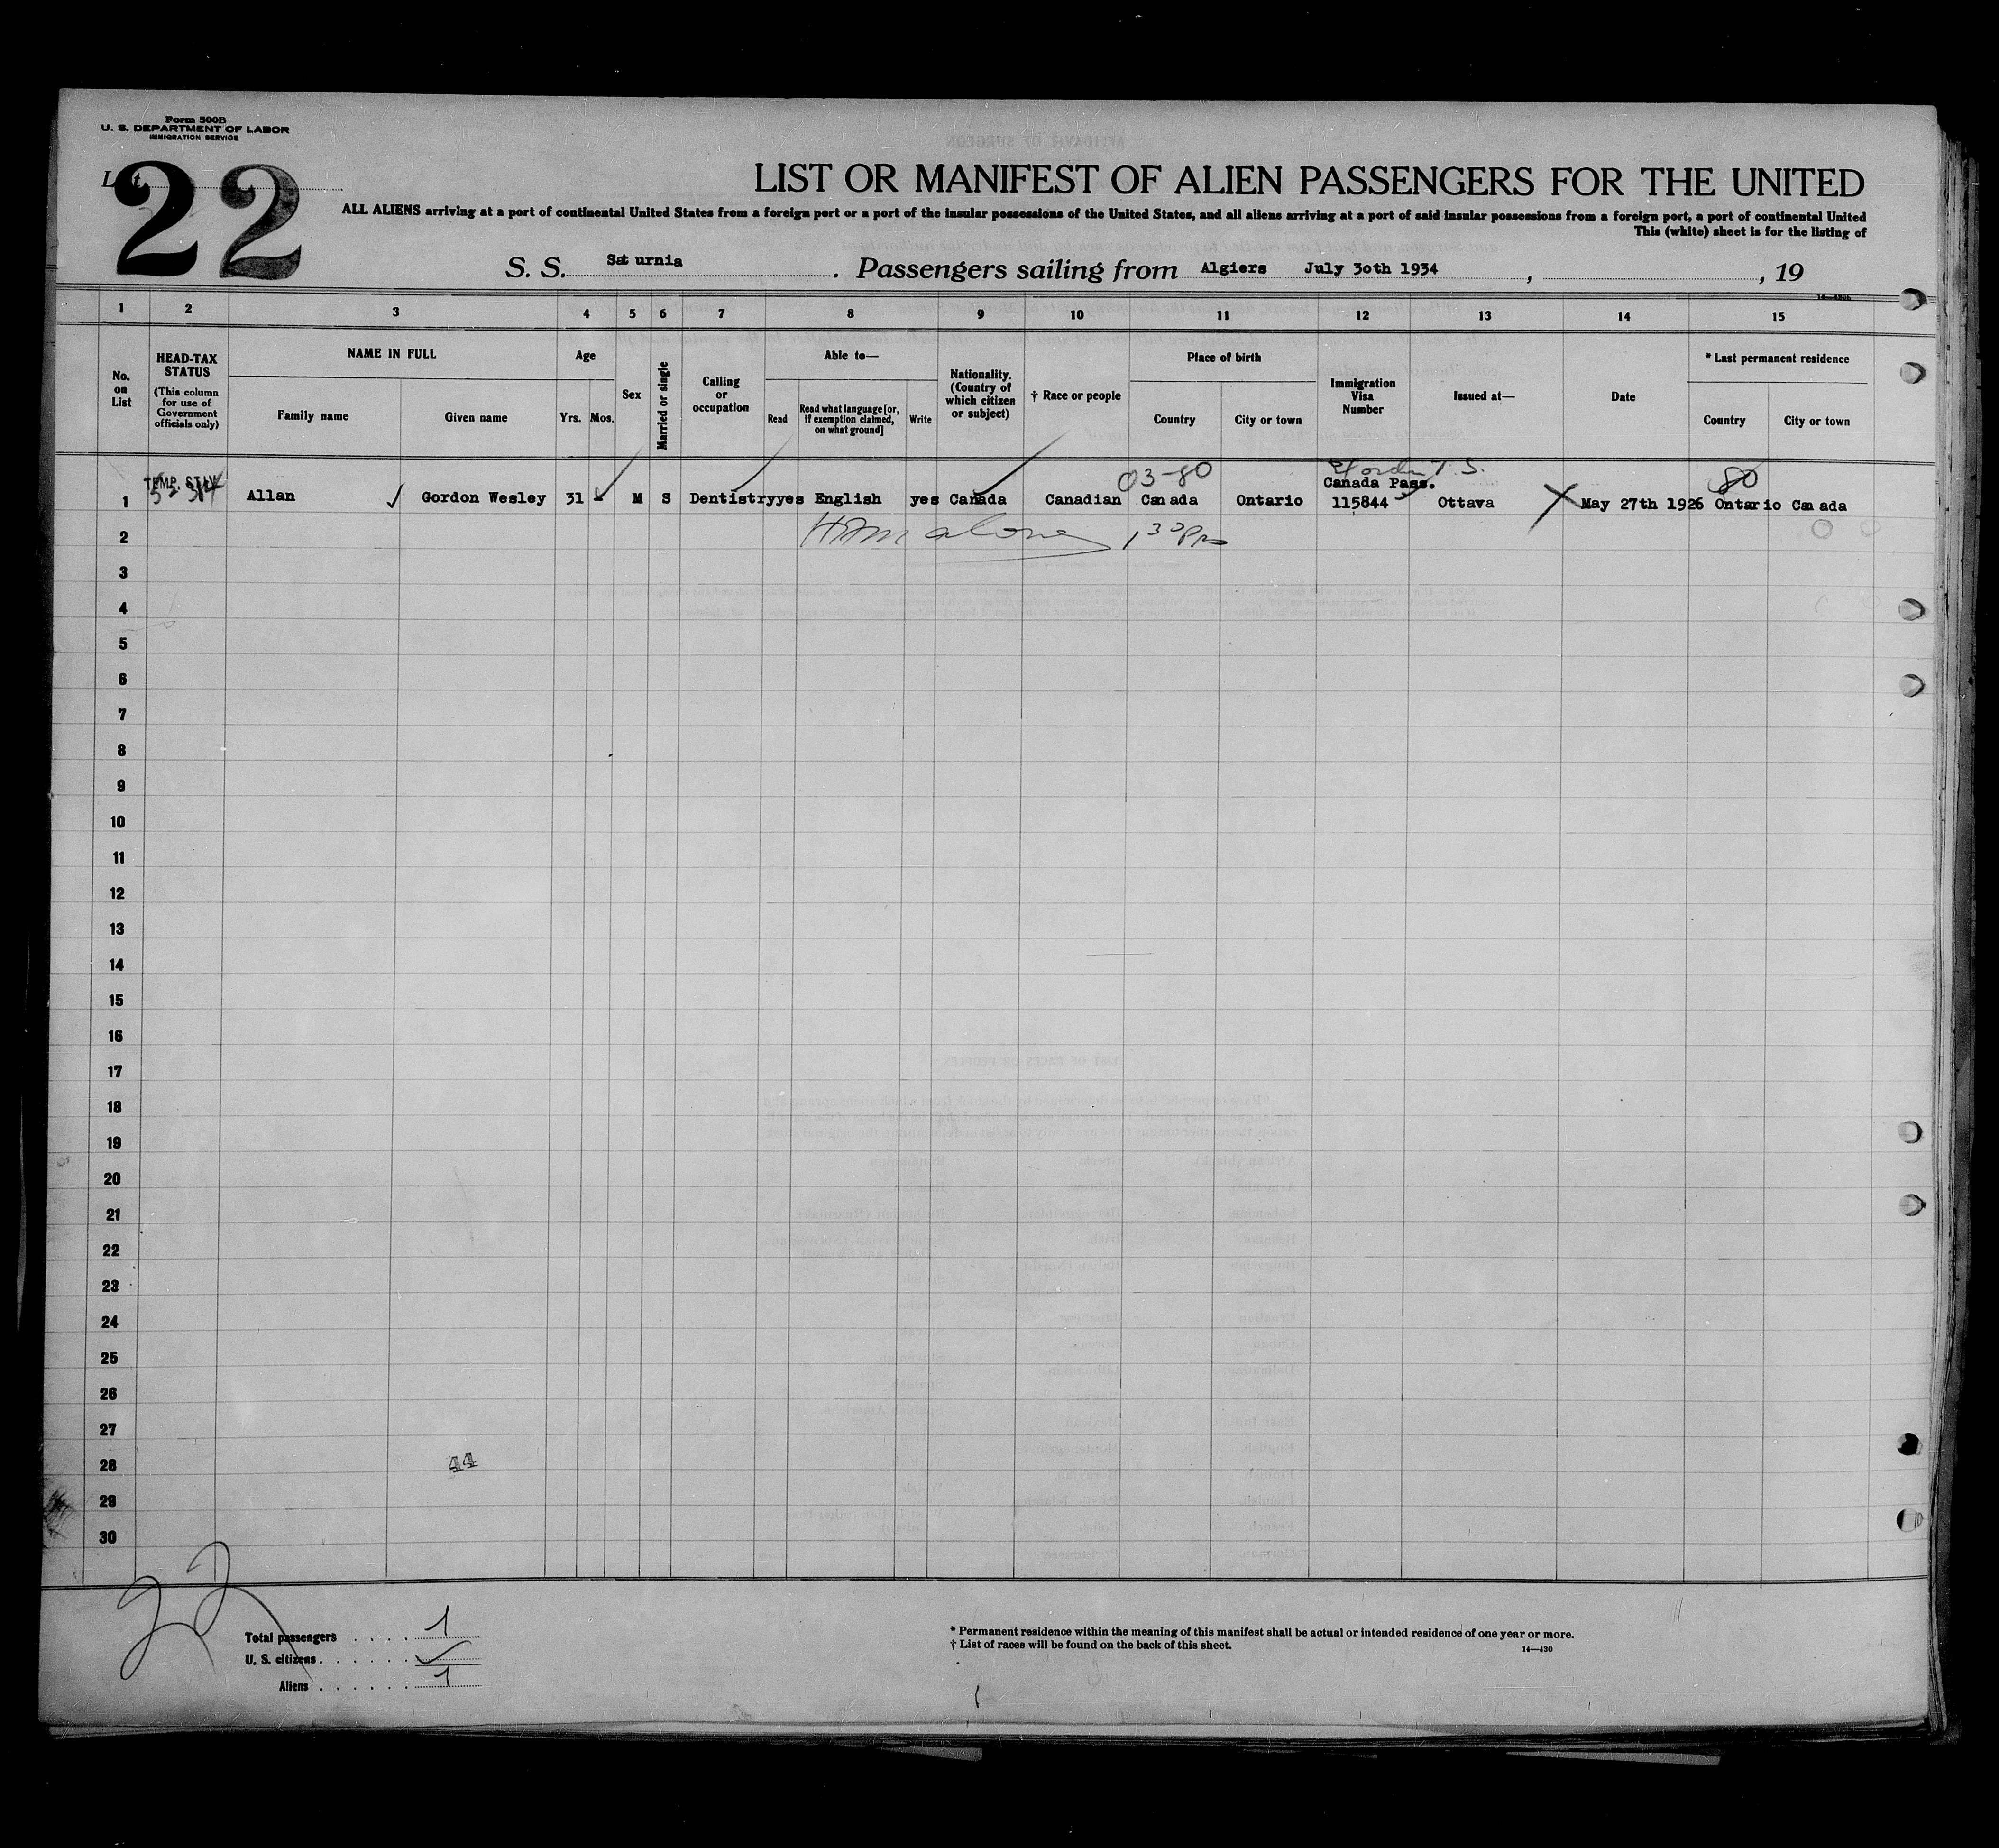 Form 500B
U. S. DEPARTMENT OF LABOR
IMMIGRATION SERVICE
22
LIST OR MANIFEST OF ALIEN PASSENGERS FOR THE UNITED
ALL ALIENS arriving at a port of continental United States from a foreign port or a port of the insular possessions of the United States, and all aliens arriving at a port of said insular possessions from a foreign port, a port of continental United
This (white) sheet is for the listing of
S. S. Saturnia. Passengers sailing from Algiers July 30th 1934, , 19
1 2 3 4 5 6 7 8 9 10 11 12 13 14 15
No. on List
HEAD-TAX STATUS
(This column for use of Government officials only)
NAME IN FULL
Family name
Given name
Age
Yrs. Mos.
Sex
Married or single
Calling or occupation
Able to—
Read
Read what language [or, if exemption claimed, on what ground]
Write
Nationality. (Country of which citizen or subject)
† Race or people
Place of birth
Country
City or town
Immigration Visa Number
Issued at—
Date
* Last permanent residence
Country
City or town
TEMP. STAY 03-80 T. S. Canada Pass. 80
1 Allan Gordon Wesley 31 M S Dentistry yes English yes Canada Canadian Canada Ontario 115844 Ottawa May 27th 1926 Ontario Canada
2 1 30 Pm
3
4
5
6
7
8
9
10
11
12
13
14
15
16
17
18
19
20
21
22
23
24
25
26
27
28 44
29
30
22
Total passengers . . . . 1
U. S. citizens . . . . . .
Aliens . . . . . . 1
* Permanent residence within the meaning of this manifest shall be actual or intended residence of one year or more.
† List of races will be found on the back of this sheet.
14—430